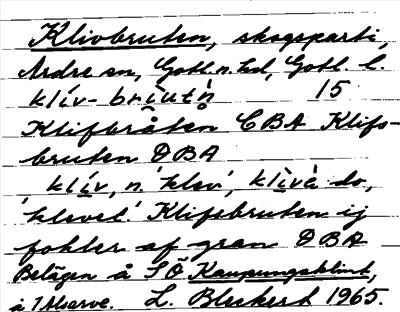 Klivbruten, skogsparti,
Ardre sn, Gotl. n. hd, Gotl. l.
klív-briutn̥ 15
Klifbråten CBA Klifs-
bruten DBA
klív, n. 'klev', klìvə̀ do,
'klevet'. Klifsbruten ij
fokter af gran DBA
Belägen å SÖ Kaupungsklint,
å 1 Alsarve. L. Bleckert 1965.